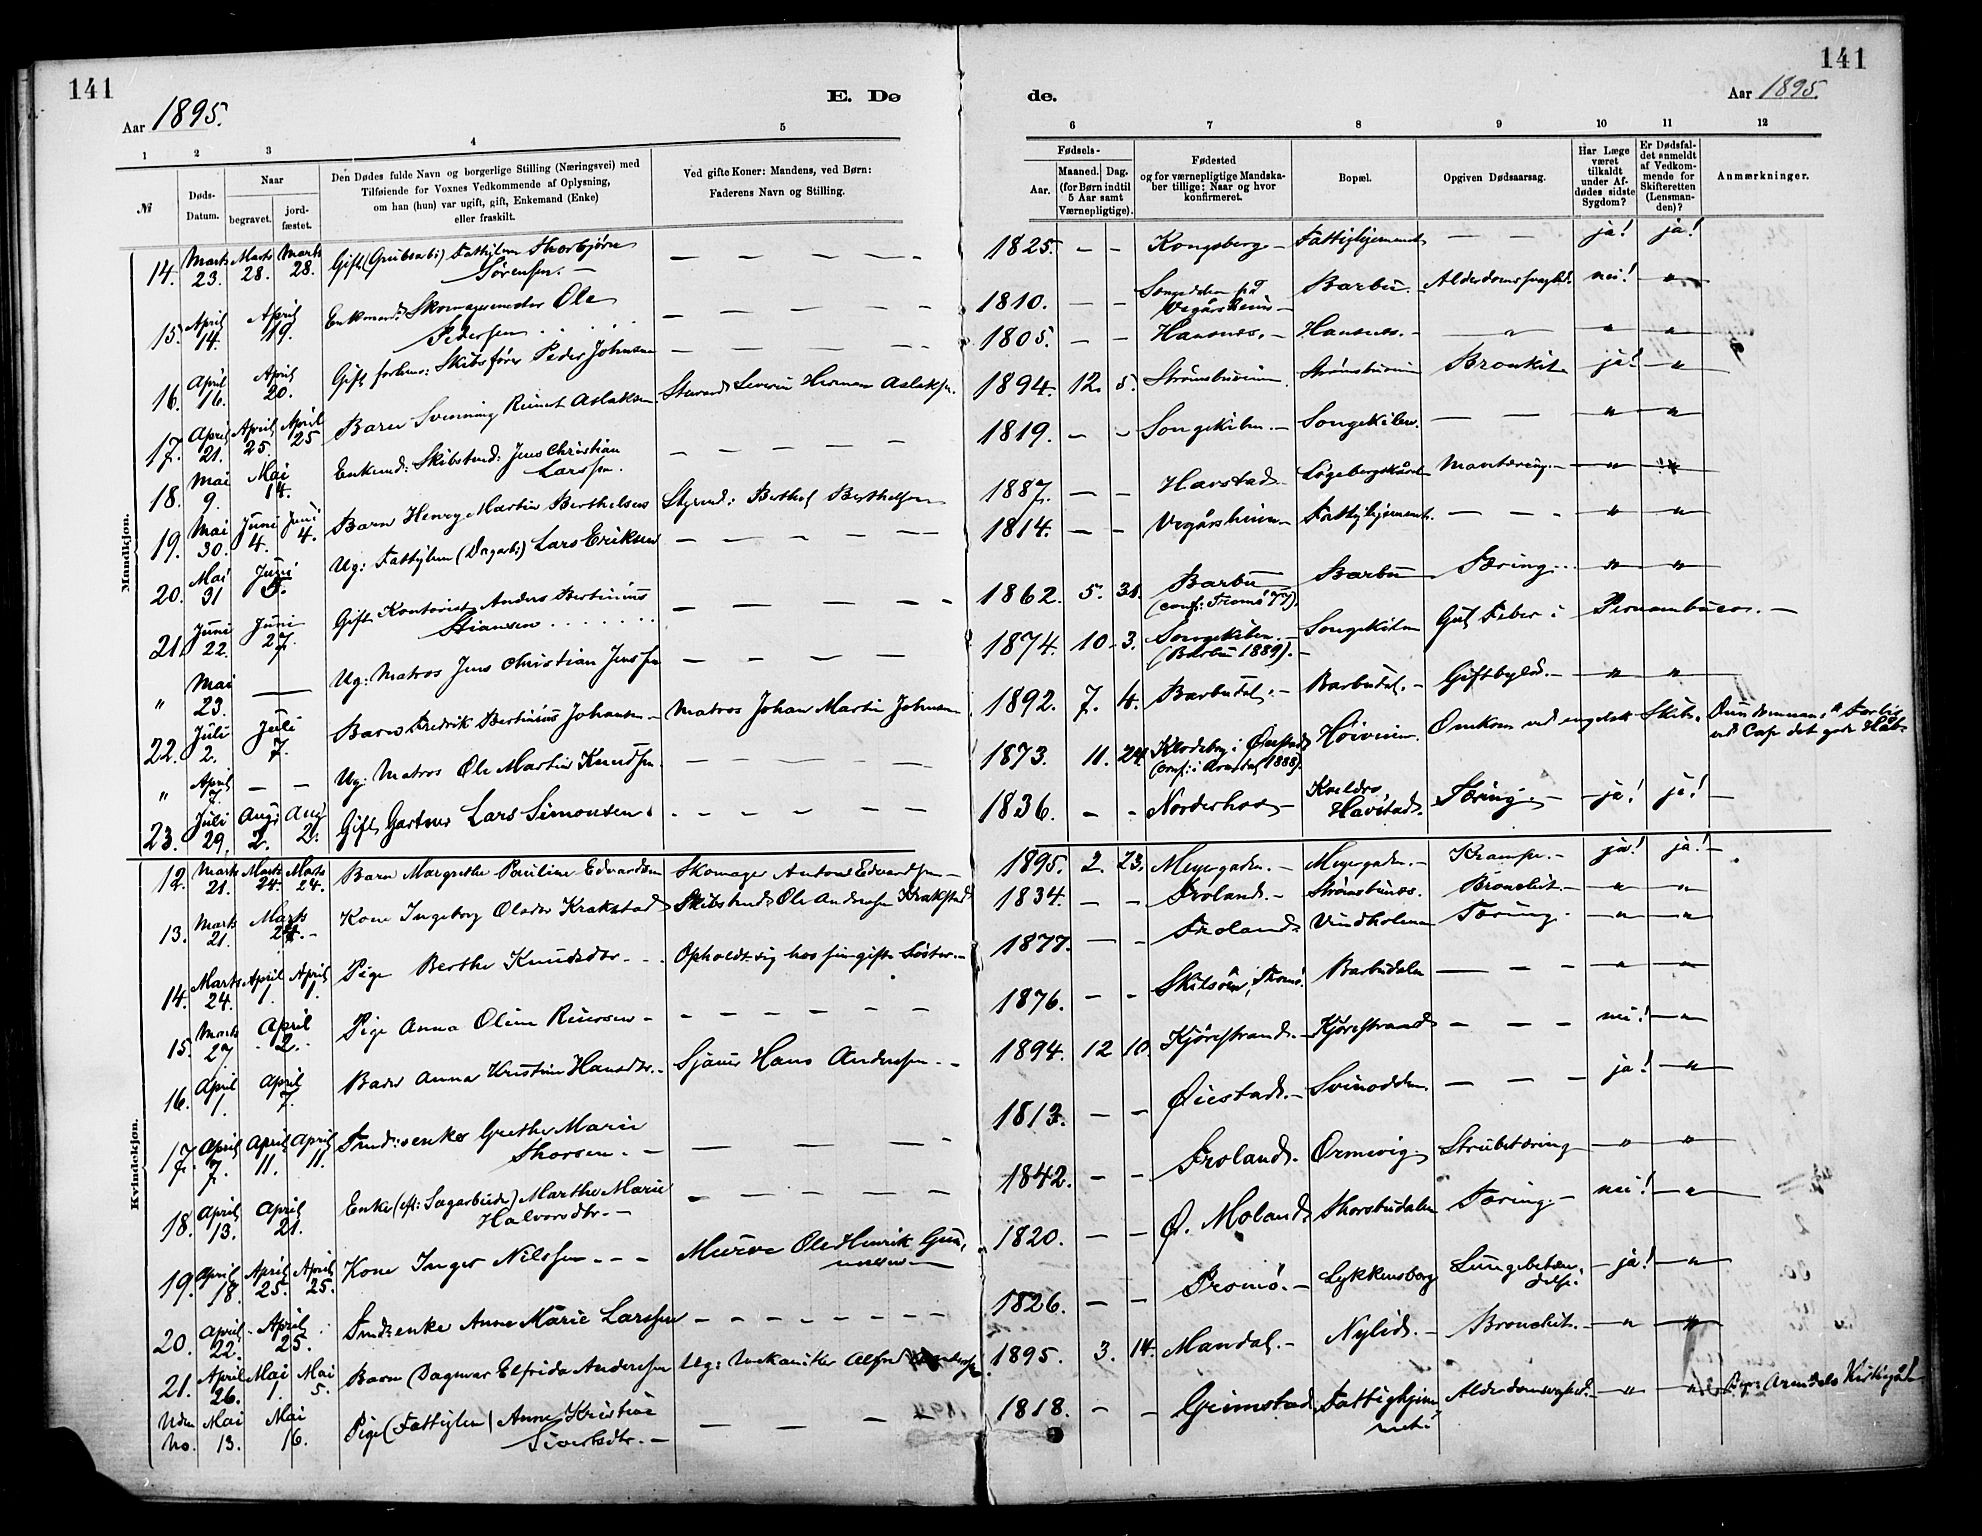 141
Aar 1895.
E. Dø
de.
141
Aar 1895.
1 2 3 4 5 6 7 8 9 10 11 12
№
Døds-Datum.
Naar
begravet.
jord-fæstet.
Den Dødes fulde Navn og borgerlige Stilling (Næringsvei) med
Tilføiende for Voxnes Vedkommende af Oplysning,
om han (hun) var ugift, gift, Enkemand (Enke)
eller fraskilt.
Ved gifte Koner: Mandens, ved Børn:
Faderens Navn og Stilling.
Fødsels-
Aar.
Maaned. Dag.
(for Børn indtil
5 Aar samt
Værnepligtige).
Fødested
og for værnepligtige Mandska-
ber tillige: Naar og hvor
konfirmeret.
Bopæl.
Opgiven Dødsaarsag.
Har Læge
været
tilkaldt
under Af-
dødes sidste
Sygdom?
Er Dødsfal-
det anmeldt
af Vedkom-
mende for
Skifteretten
(Lensman-
den)?
Anmærkninger.
Mandkjøn.
14. Marts 23. Marts 28. Marts 28. Gift Fattiglem Thorbjørn Sørensen. — 1825. — — Kongsberg — Fattighjemmet — — ja! ja!
15. April 14. April 19. Enkemand: Skomagermester Ole Pedersen 1810. — — Vegårsheien — Barbu. Alderdomssvaghed. nei! "
16. April 16. April 20. Gift forhenv: Skibsfører Peder Johnsen 1805. — — Hansnes. — Hansnes. — " " "
17. April 21. April 25. April 25 Barn Svenning Aslaksen. Severin Herman Aslaksen. 1894. 12. 5. Strømsbuveien Strømsbuveien Bronkit ja! "
18. Mai 9. Mai 14. Enkemd: Skibstmd: Jens Christian Larssen. 1819. — — Songekilen. — Songekilen. — — " "
19. Mai 30. Juni 4. Juni 4. Barn Henry Martin Berthelsen Styrmd: Berthel Berthelsen 1887. — — Havstad " "
20. Mai 31 Juni 5. Ug: Fattiglem (Dagarb:) Lars Eriksen 1814. — — Vegårsheien — Fattighjemmet. — — " "
21. Juni 22. Juni 27. Gift Kontorist Anders Bertinius Stiansen 1862. 5. 31. Barbu (conf: Tromø 77). Barbu Tæring. " "
" Mai 23. — Ug: Matros Jens Christian Jenssen 1874. 10. 3. Songekilen. — (Barbu 1889). — Songekilen Gul Feber i Pernambuco. —
22. Juli 2. Juli 7. Barn Fredrik Bertinius Johansen — Matros Johan Martin Johnsen 1892. 7. 4. Barbudal. — Barbudal. — Giftbyld. — " "
" April 7. — — Ug: Matros Ole Martin Knudsen. 1873. 11. 24. i Øiestad (conf: i Arendal 1888). Høiveien. Omkom ved engelsk Skib. ved Cap det gode Håb.
23. Juli 29. Aug: 2. Aug 2. Gift Gartner Lars Simonsen. 1836. — — Norderhov — Havstad. Tæring. — ja! ja! —
Kvindekjøn.
12. Marts 21. Marts 24. Marts 24. Barn Margrethe Pauline Edvardsen Skomager Anton Edvardsen — 1895. 2. 23. Meyergaden. — Meyergaden. — Krampe. — ja! ja! —
13. Marts 21. Marts 24. — Kone Ingeborg Olsdtr Krakstad Skibstmd Ole Andersen Krakstad 1834. — — Froland. — Strømsbunes. Bronchit. — " "
14. Marts 24. April 1. April 1. Pige Berthe Knudsdtr. Opholdt sig hos sin gifte Søster. — 1877. — — Froland. Vindholmen Tæring. — " "
15. Marts 27 April 2. Pige Anna Oline — 1876. — — Skilsøen, Tromø. Barbudalen — — — " "
16. April 1. April 7. Barn Anna Kristine Hansdtr. — Sjauer Hans Andersen. — 1894. 12 10. Kjørrestrand. — Kjørrestrand — — — nei! "
17. April 7. April 11. April 11. Tmd: enke Grethe Marie Thorsen. — 1813. — — Øiestad. — Svinodden. — — — ja! "
18. April 13. April 21. Enke (eft: Sagarbeider) Marthe Marie Halvorsdtr. — 1842. — — Froland. Ormevig Strubetæring " "
19. April 18. April 25. April 25. Kone Inger Nilssen — — — Murer Ole Henrik Gun- 1820. — — Ø. Moland. Thorsbudalen Tæring. — nei! "
20. April 22. April 25. Tmd: enke Anne Marie Larssen 1826. — — Tromø. — Lykkensborg Lungebetæn- delse. ja! "
21. April 26. Mai 1. Mai 5. Barn Dagmar Elfrida Anderssen Ug: Mekaniker Alfred 1895. 3. 14. Mandal. — Nylid. — Bronchit. — " "
Uden No. Mai 13. Mai 16. Pige (Fattiglem) Anne Kristine Sivertsdtr. — 1818. — — Grimstad Fattighjem- met. Alderdomssvaghed. " " Arendals Kirkegård